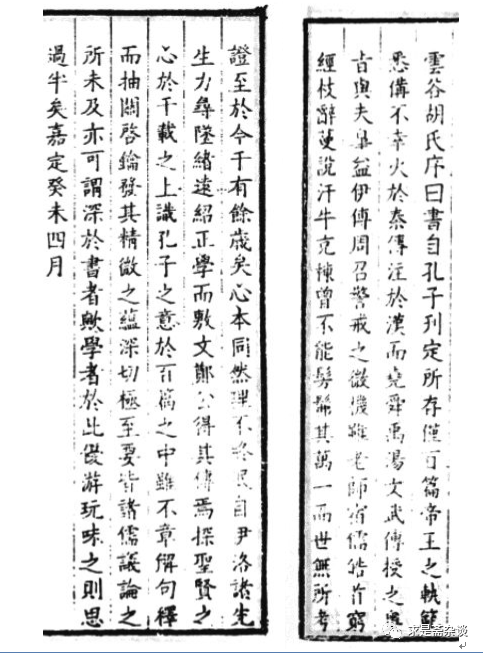 雲谷胡氏序曰書自孔子刊定所存僅百篇帝王之軌範
悉備不幸火於秦傳注於漢而堯舜禹湯文武傳授之奧
旨與夫皋益伊傅周召警戒之微機雖老師宿儒皓首窮
經枝辭蔓說汗牛充棟曾不能髣髴其萬一而世無所考
證至於今千有餘歲矣心本同然理不終泯自尹洛諸先
生力尋墜緒遠紹正學而敷文鄭公得其傳焉探聖賢之
心於千載之上識孔子之意於百篇之中雖不章解句釋
而抽關啓鑰發其精微之蘊深切極至要皆諸儒議論之
所未及亦可謂深於書者歟學者於此優游玩味之則思
過半矣嘉定癸未四月
求是斋杂谈